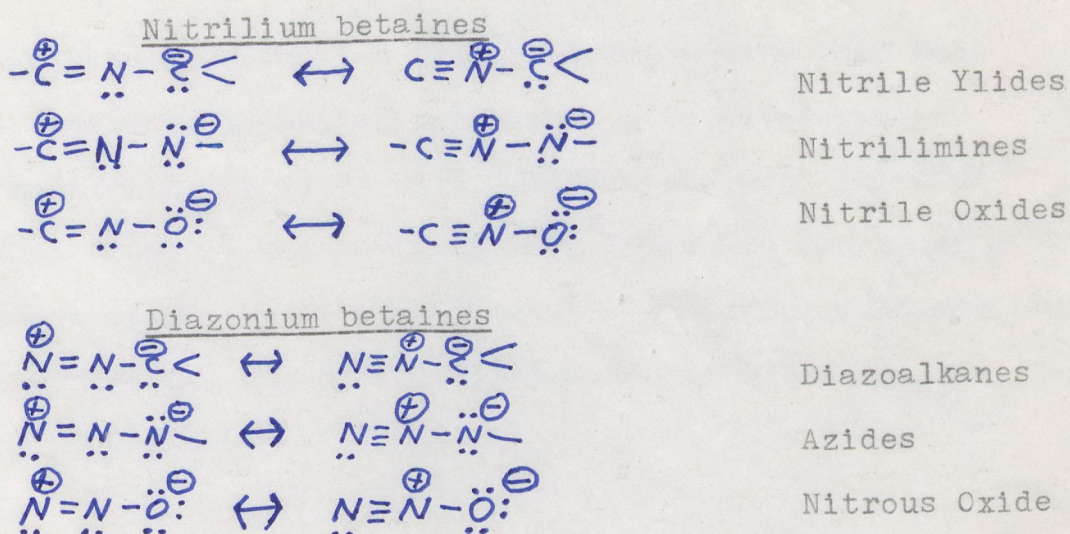 Nitrilium betaines
-C⊕=N̤-C̤⊖< ↔ C≡N⊕-C̤⊖< Nitrile Ylides
-C⊕=N̤-N̤̈⊖- ↔ -C≡N⊕-N̤̈⊖- Nitrilimines
-C⊕=N̤-Ö̤:⊖ ↔ -C≡N⊕-Ö̤:⊖ Nitrile Oxides
Diazonium betaines
N̤⊕=N̤-C̤⊖< ↔ N̤≡N⊕-C̤⊖< Diazoalkanes
N̤⊕=N̤-N̤̈⊖- ↔ N̤≡N⊕-N̤̈⊖- Azides
N̤⊕=N̤-Ö̤:⊖ ↔ N̤≡N⊕-Ö̤:⊖ Nitrous Oxide